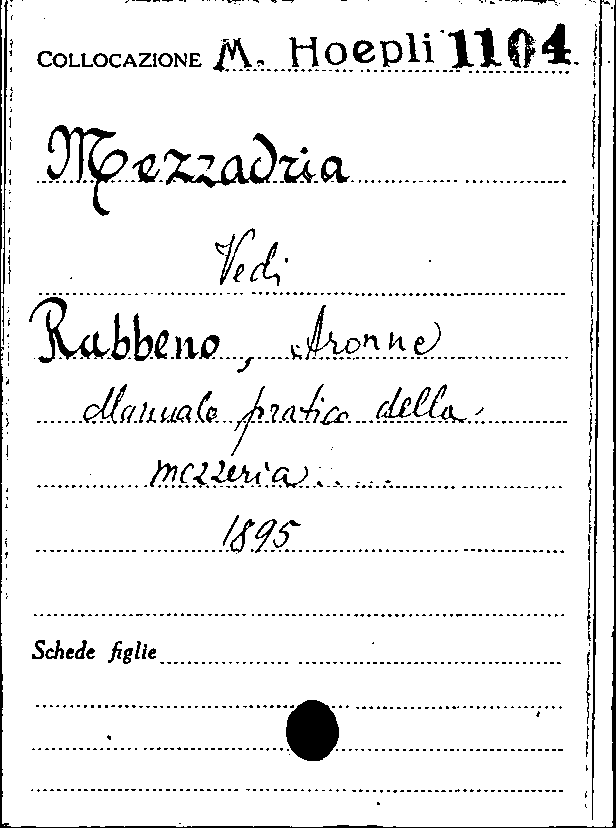 COLLOCAZIONE M. Hoepli 1104
Mezzadria
Vedi
Rabbeno, Aronne
Manuale pratico della
mezzeria.....
1895
Schede figlie